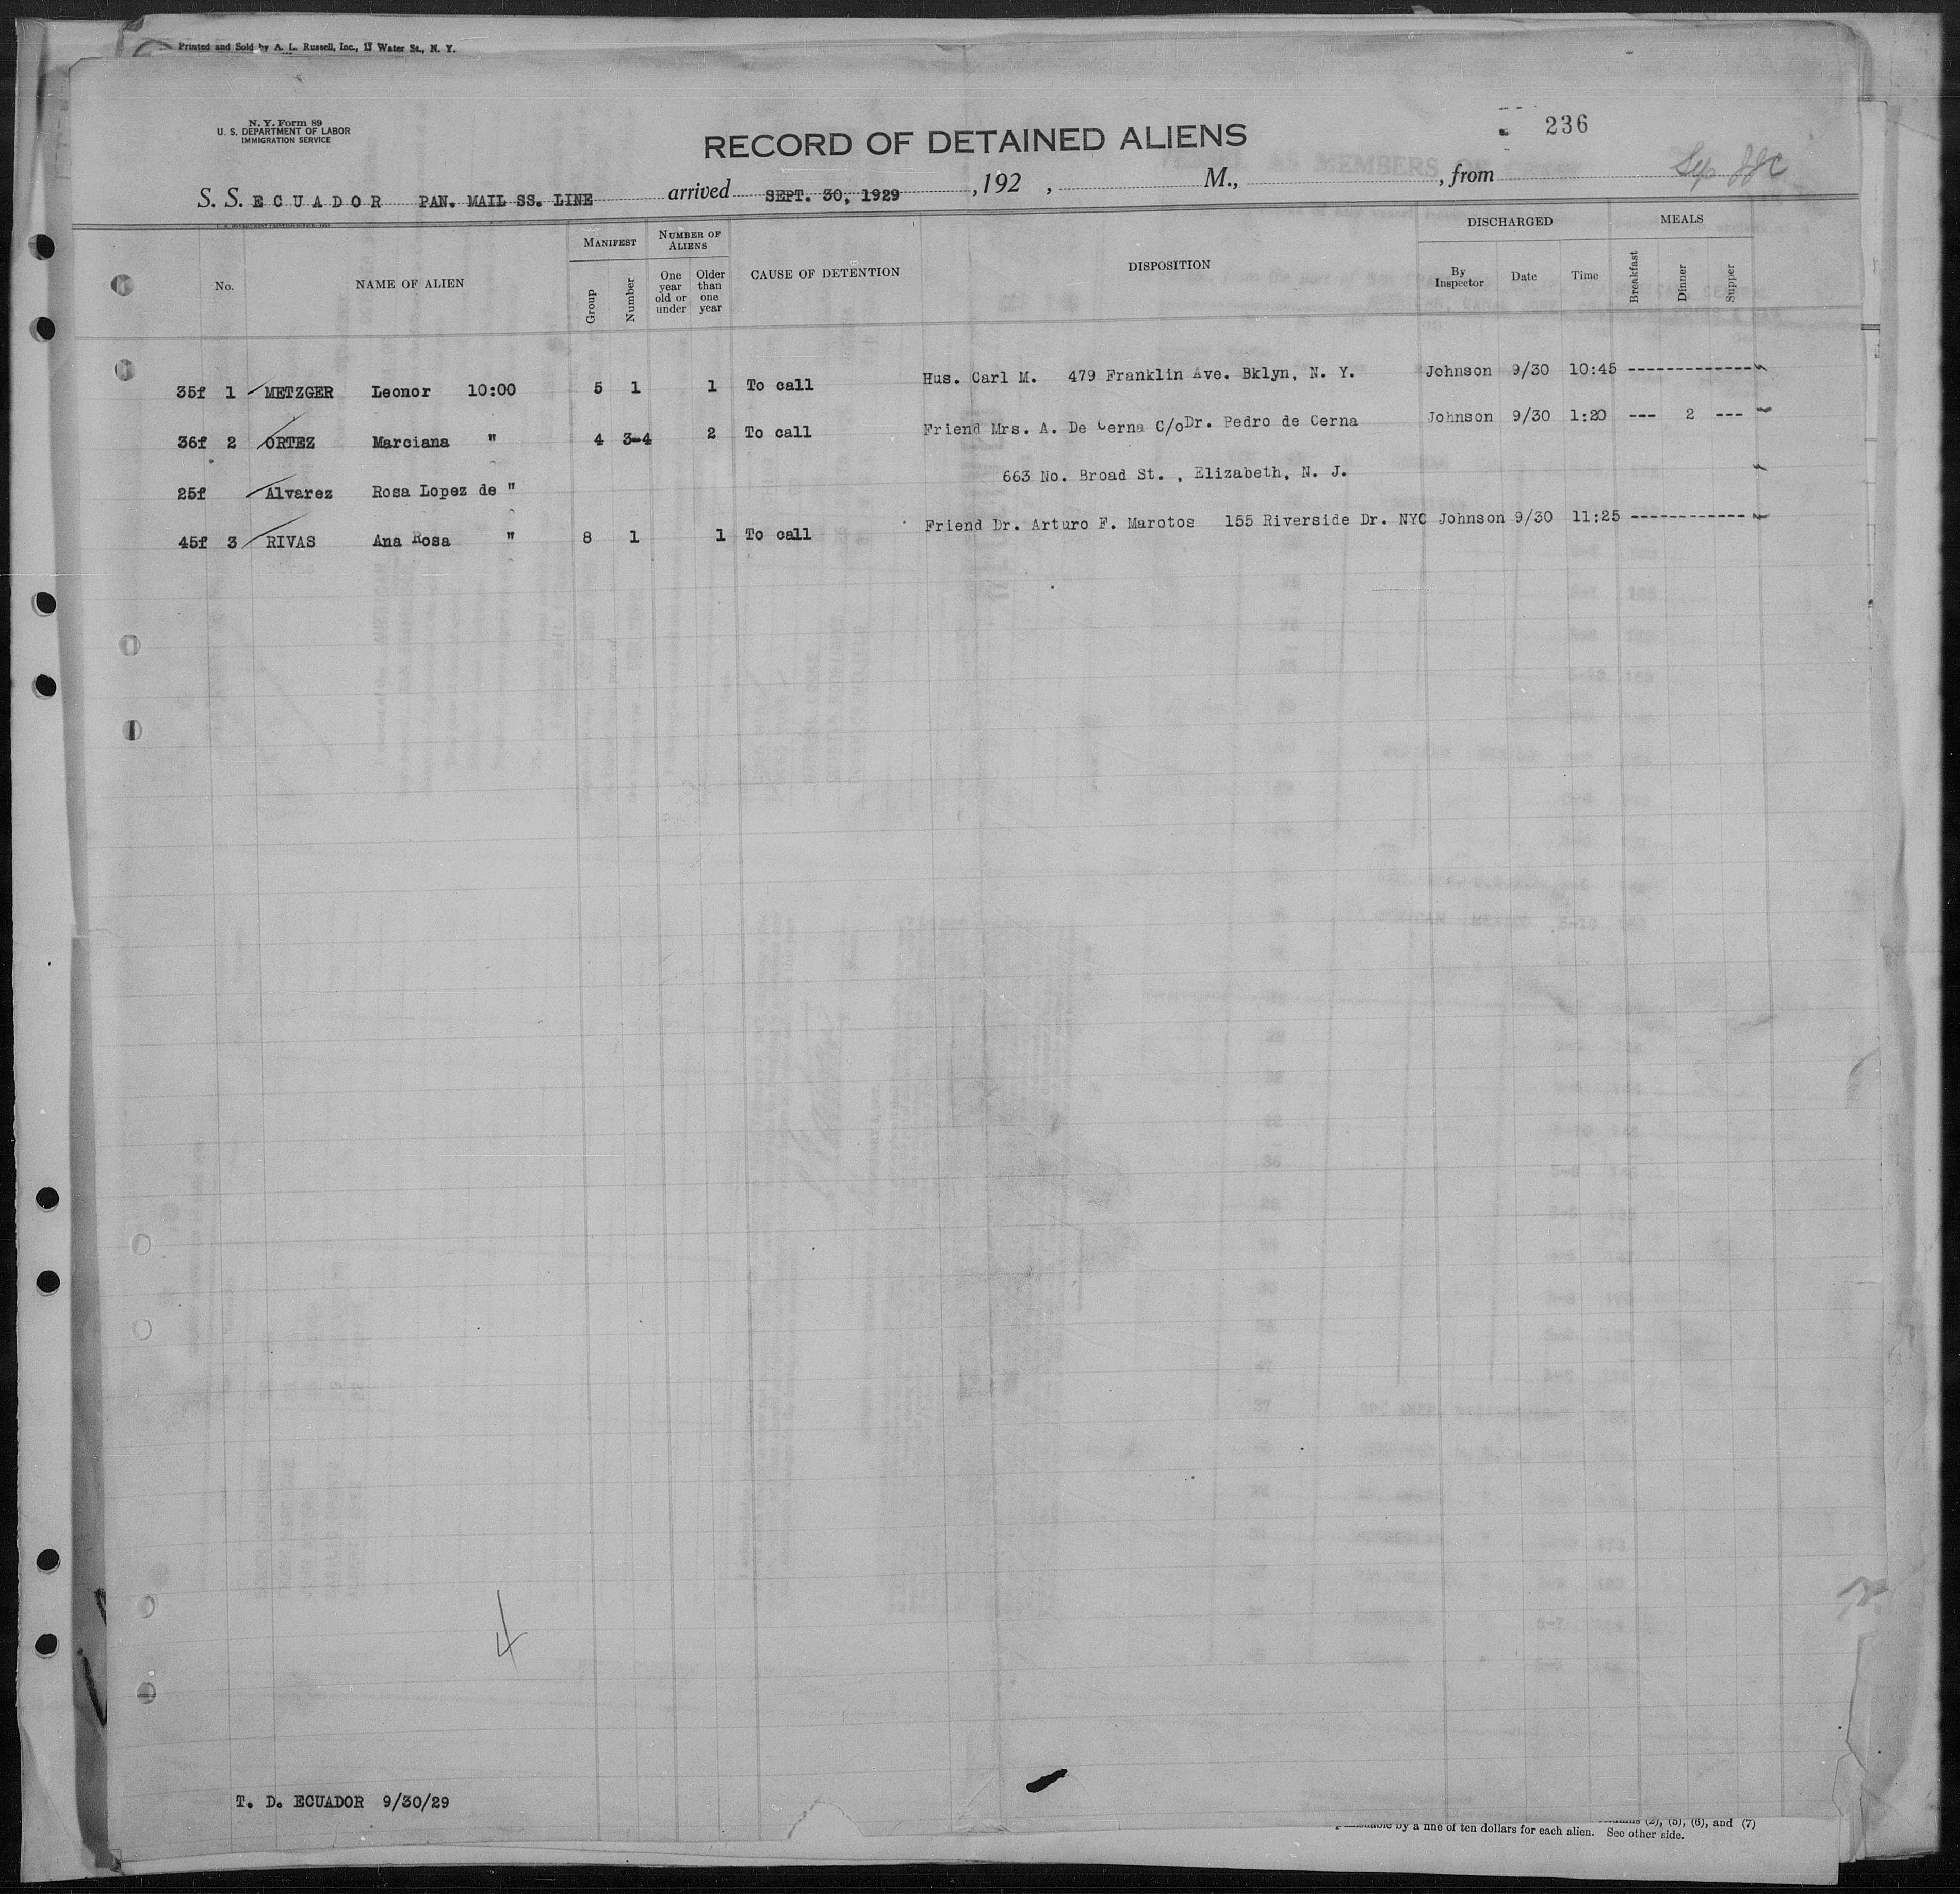 Printed and Sold by A. L. Russell, Inc., 11 Water St., N. Y.
N. Y. Form 89
U. S. DEPARTMENT OF LABOR
IMMIGRATION SERVICE
RECORD OF DETAINED ALIENS
236
S. S. ECUADOR PAN. MAIL SS. LINE arrived SEPT. 30, 1929 , 192 , M., , from
No. NAME OF ALIEN MANIFEST Group Number NUMBER OF ALIENS One year old or under Older than one year CAUSE OF DETENTION DISPOSITION DISCHARGED By Inspector Date Time MEALS Breakfast Dinner Supper
35f 1 METZGER Leonor 10:00 5 1 1 To call Hus. Carl M. 479 Franklin Ave. Bklyn, N. Y. Johnson 9/30 10:45 --------------
36f 2 ORTEZ Marciana " 4 3-4 2 To call Friend Mrs. A. De Cerna C/o Dr. Pedro de Cerna Johnson 9/30 1:20 --- 2 ---
25f Alvarez Rosa Lopez de " 663 No. Broad St. , Elizabeth, N. J.
45f 3 RIVAS Ana Rosa " 8 1 1 To call Friend Dr. Arturo F. Marotos 155 Riverside Dr. NYC Johnson 9/30 11:25 -------------
4
T. D. ECUADOR 9/30/29
(2), (5), (6), and (7)
by a fine of ten dollars for each alien. See other side.